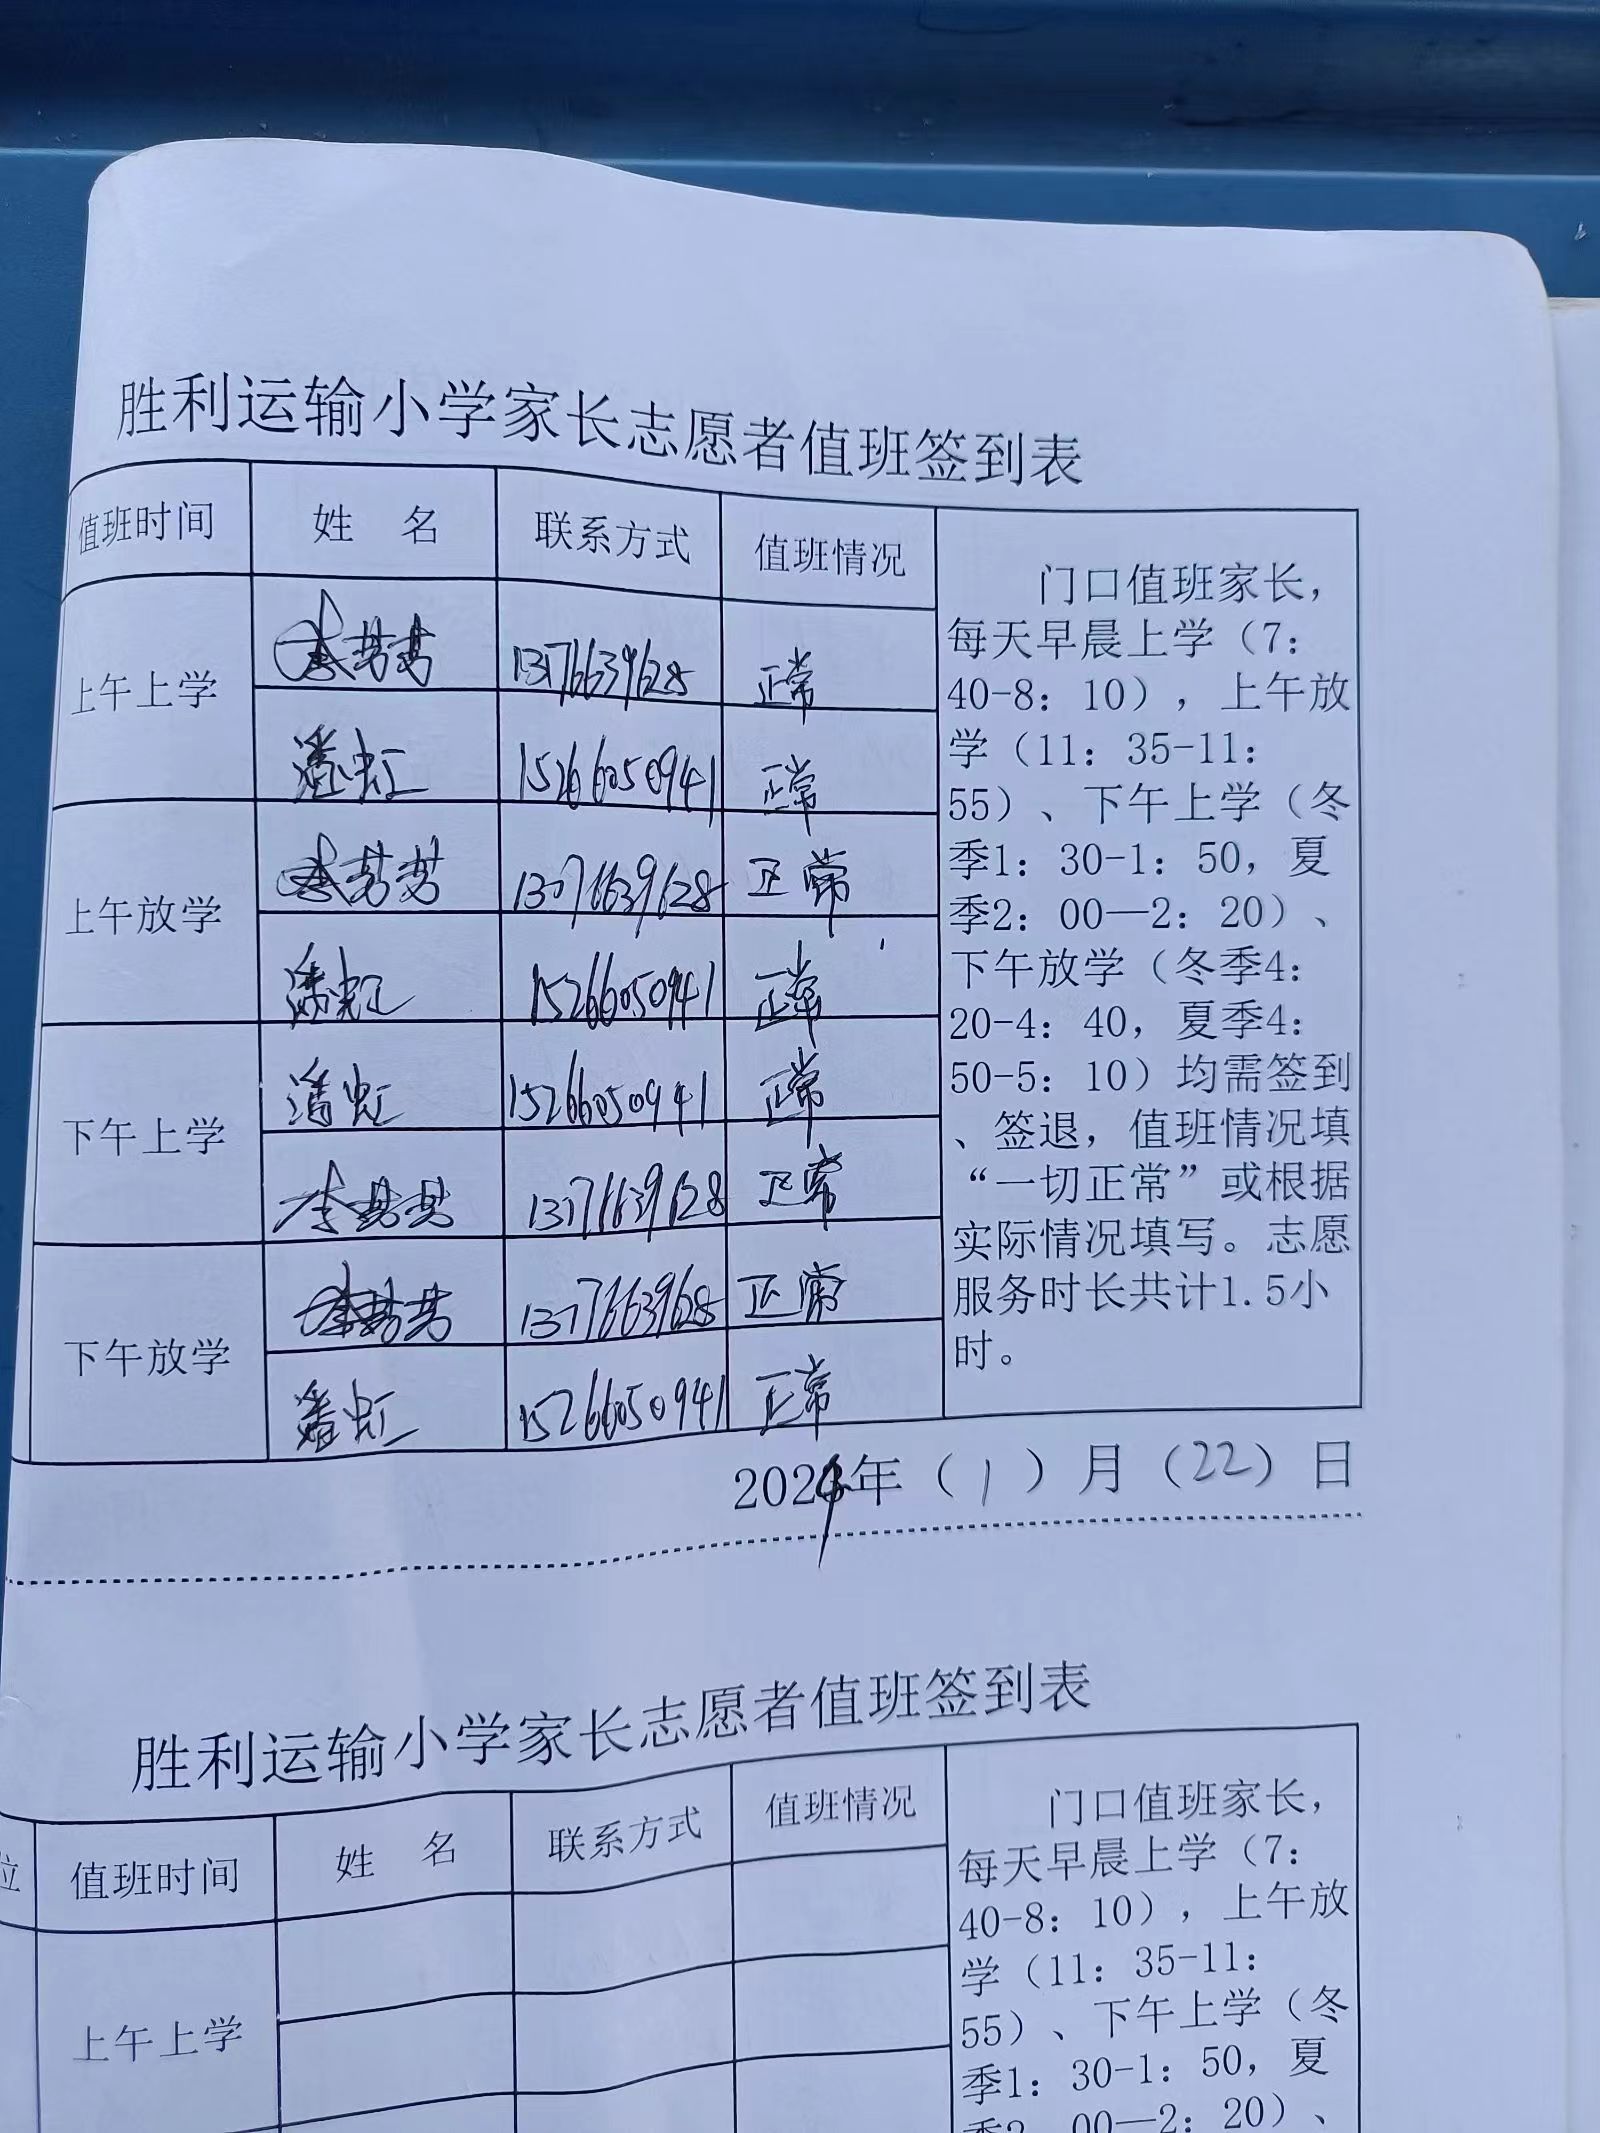 胜利运输小学家长志愿者值班签到表
值班时间 姓 名 联系方式 值班情况
上午上学
李芸芸 13776639628 正常
潘虹 15266050941 正常
上午放学
李芸芸 13776639628 正常
潘虹 15266050941 正常
下午上学
潘虹 15266050941 正常
李芸芸 13776639628 正常
下午放学
李芸芸 13776639628 正常
潘虹 15266050941 正常
门口值班家长，
每天早晨上学（7：
40-8：10），上午放
学（11：35-11：
55）、下午上学（冬
季1：30-1：50，夏
季2：00—2：20）、
下午放学（冬季4：
20-4：40，夏季4：
50-5：10）均需签到
、签退，值班情况填
“一切正常”或根据
实际情况填写。志愿
服务时长共计1.5小
时。
2024年（1）月（22）日
胜利运输小学家长志愿者值班签到表
位 值班时间 姓 名 联系方式 值班情况
上午上学
门口值班家长，
每天早晨上学（7：
40-8：10），上午放
学（11：35-11：
55）、下午上学（冬
季1：30-1：50，夏
季2：00—2：20）、